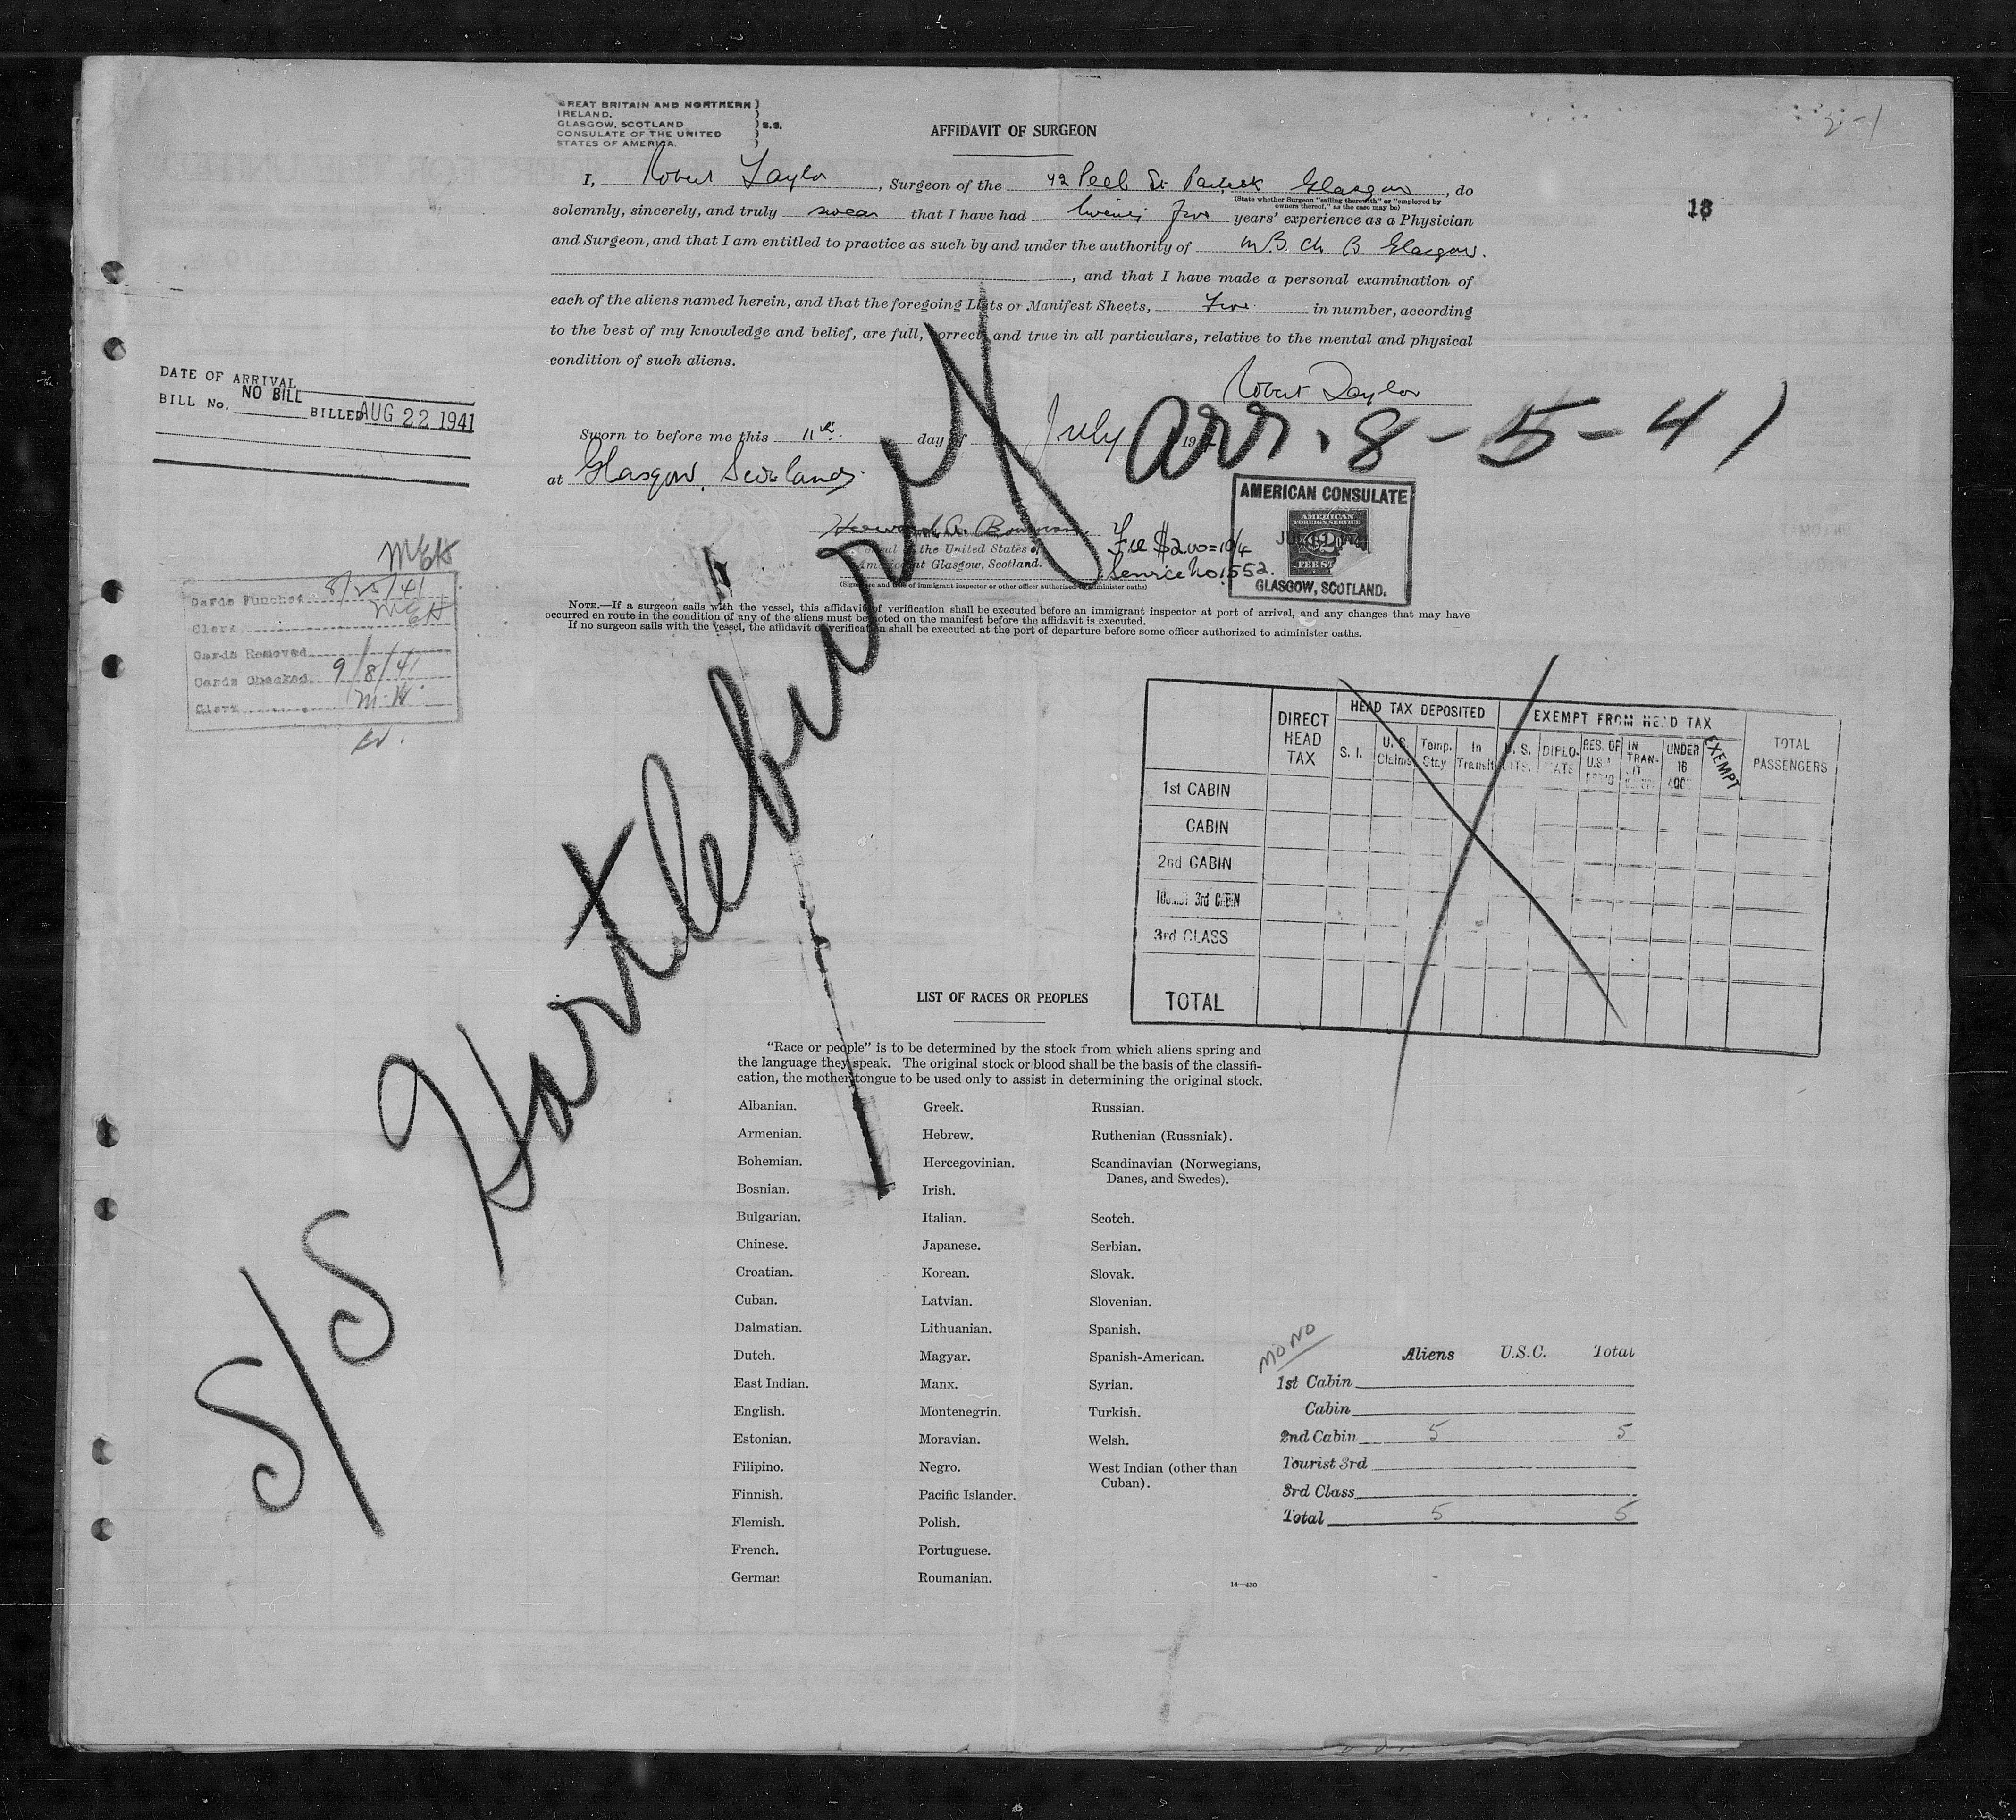 GREAT BRITAIN AND NORTHERN
IRELAND.
GLASGOW, SCOTLAND S.S.
CONSULATE OF THE UNITED
STATES OF AMERICA.
2-1
AFFIDAVIT OF SURGEON
I, Robert Taylor, Surgeon of the 42 Peel St. Partick Glasgow, do
(State whether Surgeon "sailing therewith" or "employed by
owners thereof," as the case may be)
13
solemnly, sincerely, and truly swear that I have had twenty five years' experience as a Physician
and Surgeon, and that I am entitled to practice as such by and under the authority of M.B. Ch B Glasgow.
, and that I have made a personal examination of
each of the aliens named herein, and that the foregoing Lists or Manifest Sheets, in number, according
to the best of my knowledge and belief, are full, correct, and true in all particulars, relative to the mental and physical
condition of such aliens.
Robert Taylor
DATE OF ARRIVAL
NO BILL
BILL No. BILLED AUG 22 1941
Sworn to before me this 11th day of July 19
arr. 8-5-41
at Glasgow, Scotland
AMERICAN CONSULATE
AMERICAN
FOREIGN SERVICE
$2
FEE STAMP
GLASGOW, SCOTLAND.
Consul of the United States of
America at Glasgow, Scotland.
Fee $2.00=10/4
Service No. 1552.
(Signature and title of immigrant inspector or other officer authorized to administer oaths)
NOTE.—If a surgeon sails with the vessel, this affidavit of verification shall be executed before an immigrant inspector at port of arrival, and any changes that may have
occurred en route in the condition of any of the aliens must be noted on the manifest before the affidavit is executed.
If no surgeon sails with the vessel, the affidavit of verification shall be executed at the port of departure before some officer authorized to administer oaths.
MEH
Cards Punched 8/25/41
Clerk MEH
Cards Removed
Cards Checked 9/8/41
Clerk M.H.
S/S Hartlebury
DIRECT HEAD TAX
HEAD TAX DEPOSITED
EXEMPT FROM HEAD TAX
TOTAL PASSENGERS
S. I.
U. S. Claims
Temp. Stay
In Transit
U. S. CITS.
DIPLO-MATS
RES. OF U.S.
IN TRAN-IT
UNDER 16
EXEMPT
1st CABIN
CABIN
2nd CABIN
TOURIST 3rd CABIN
3rd CLASS
TOTAL
LIST OF RACES OR PEOPLES
"Race or people" is to be determined by the stock from which aliens spring and
the language they speak. The original stock or blood shall be the basis of the classifi-
cation, the mother tongue to be used only to assist in determining the original stock.
Albanian.
Armenian.
Bohemian.
Bosnian.
Bulgarian.
Chinese.
Croatian.
Cuban.
Dalmatian.
Dutch.
East Indian.
English.
Estonian.
Filipino.
Finnish.
Flemish.
French.
German
Greek.
Hebrew.
Hercegovinian.
Irish.
Italian.
Japanese.
Korean.
Latvian.
Lithuanian.
Magyar.
Manx.
Montenegrin.
Moravian.
Negro.
Pacific Islander.
Polish.
Portuguese.
Roumanian.
Russian.
Ruthenian (Russniak).
Scandinavian (Norwegians,
Danes, and Swedes).
Scotch.
Serbian.
Slovak.
Slovenian.
Spanish.
Spanish-American.
Syrian.
Turkish.
Welsh.
West Indian (other than
Cuban).
MONO
Aliens U.S.C. Total
1st Cabin
Cabin
2nd Cabin 5 5
Tourist 3rd
3rd Class
Total 5 5
14—430